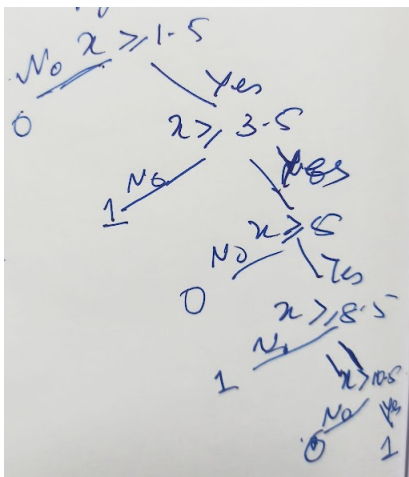 x ≥ 1.5
No Yes
0 x ≥ 3.5
No Yes
1 x ≥ 5
No Yes
0 x ≥ 8.5
No
1 x ≥ 10.5
No Yes
0 1